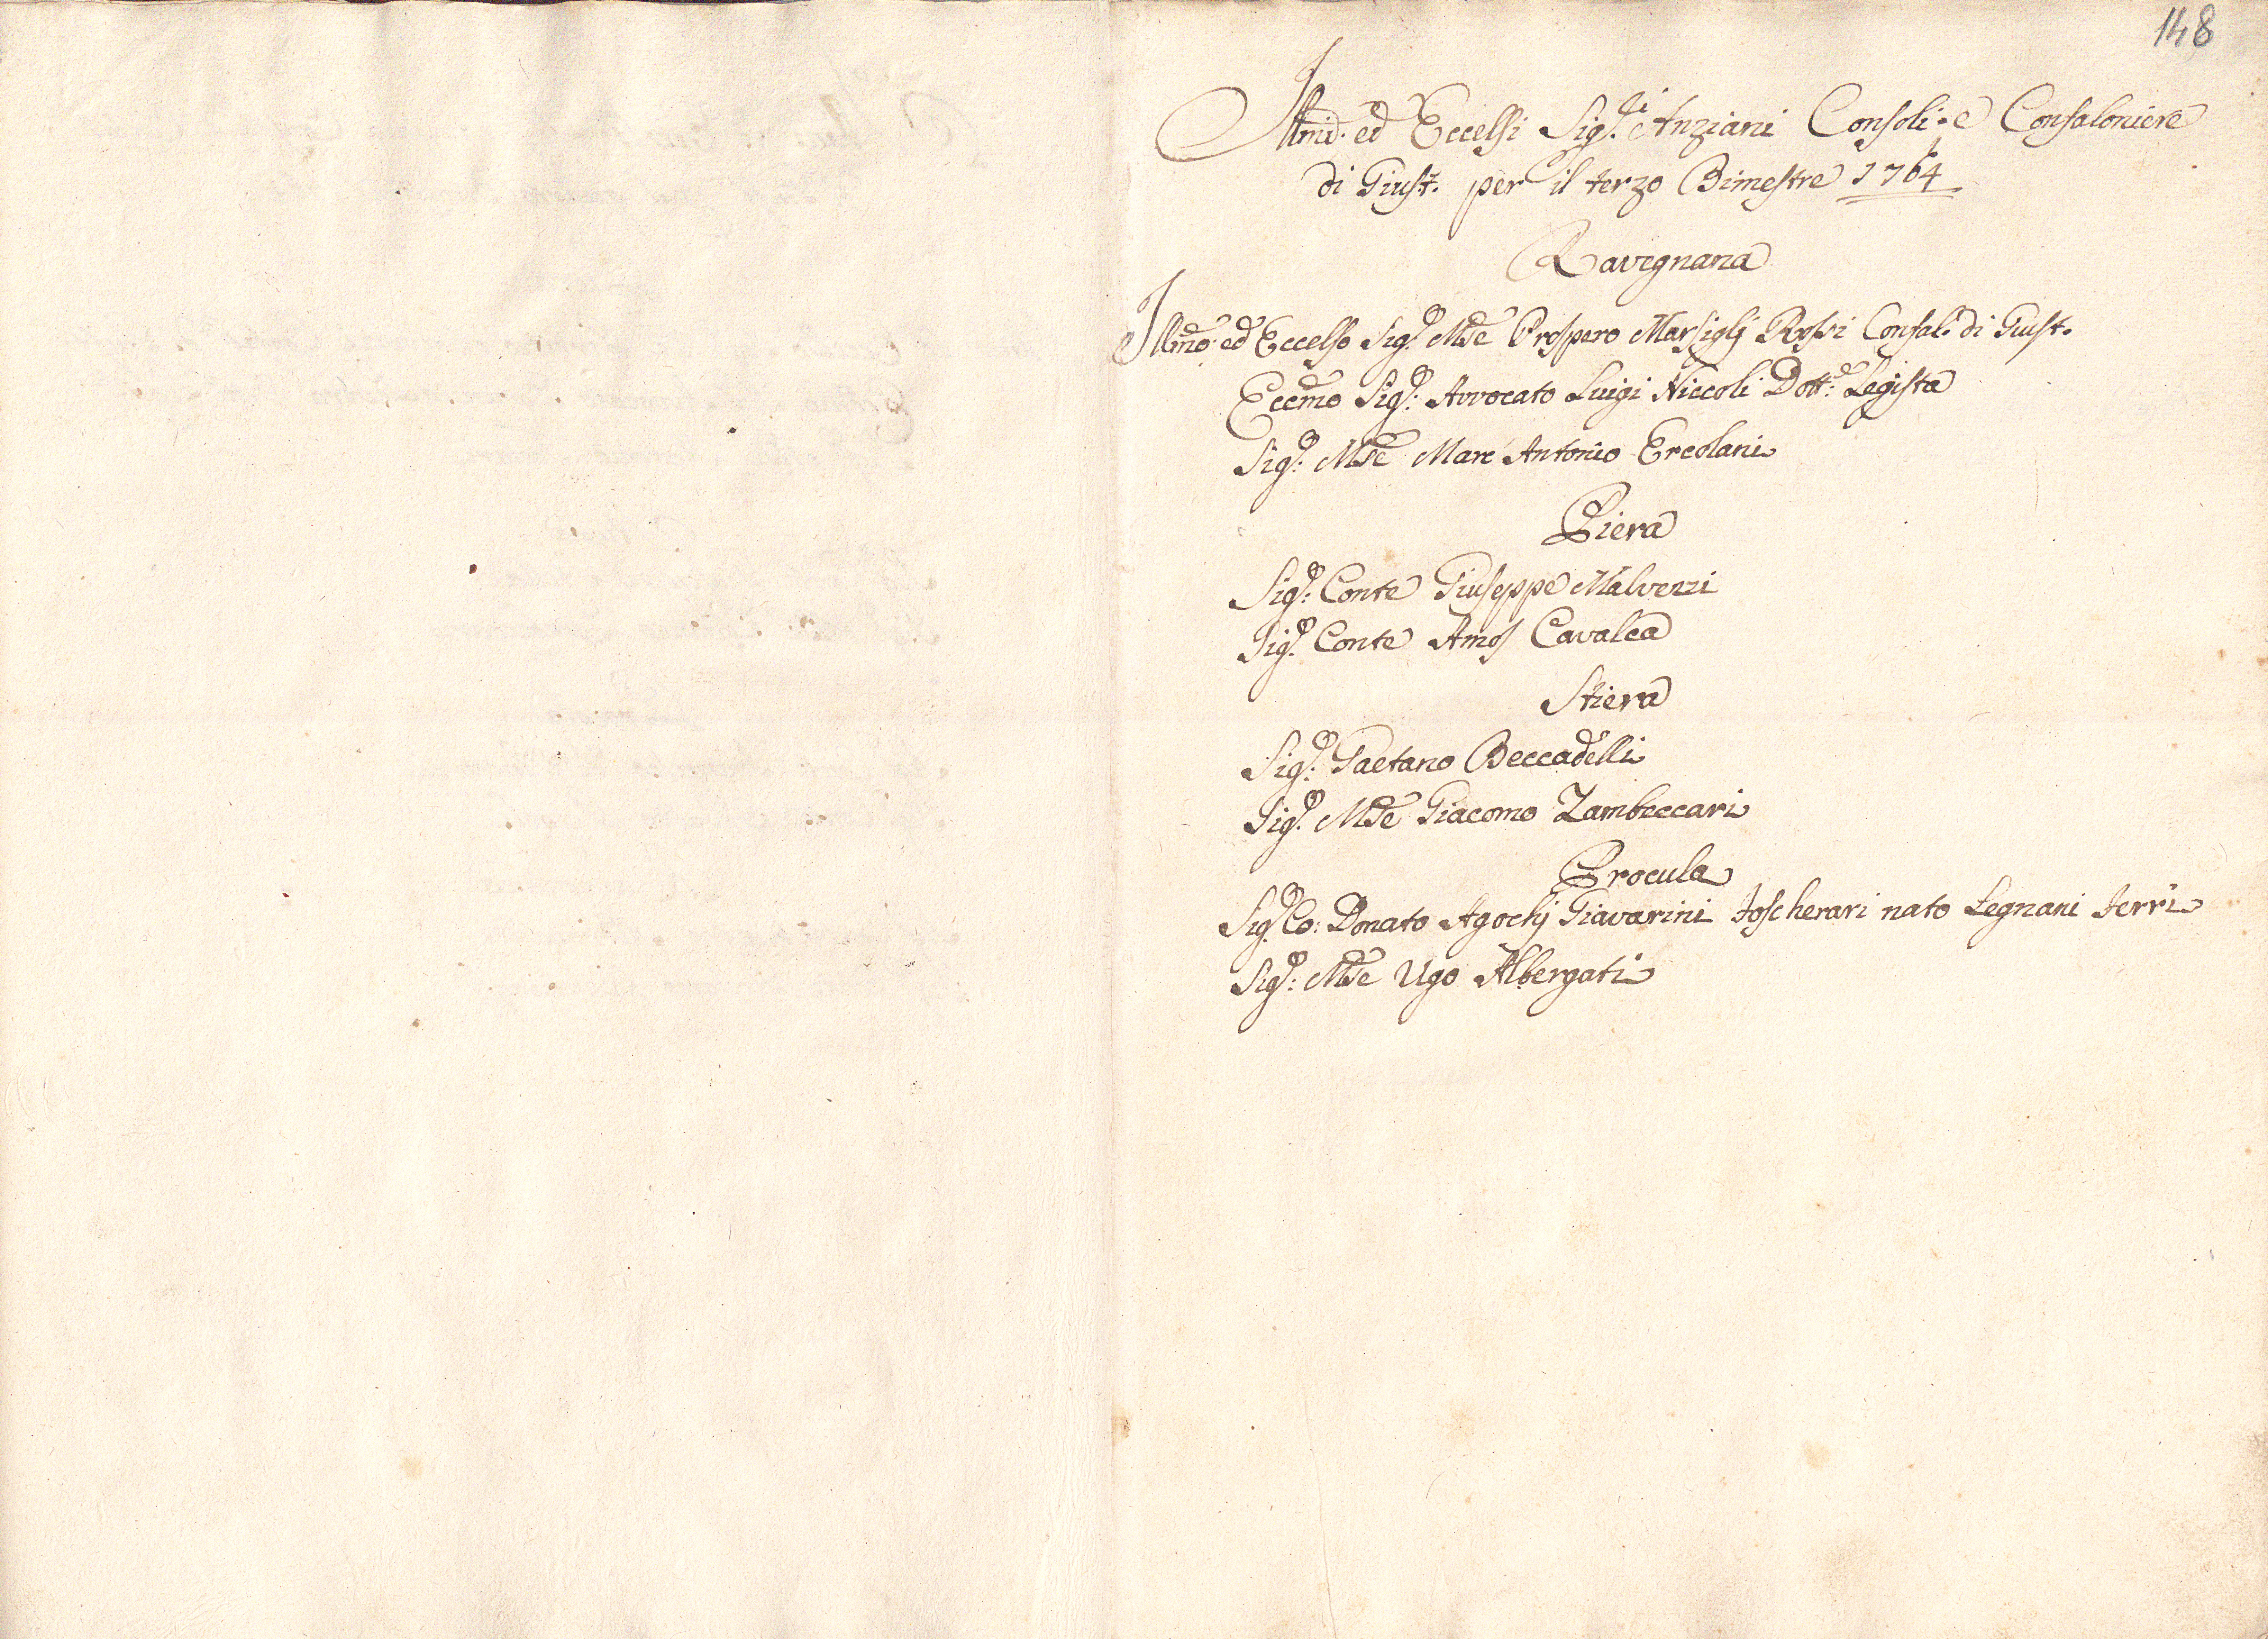 148
Illmi ed Eccelsi Sig.ri Anziani Consoli e Confaloniere
di Giust. per il terzo Bimestre 1764
Ravegnana
Illmo ed Eccelso Sig.r Mse Prospero Marsiglj Rossi Confal. di Giust.
Eccmo Sig.r Avvocato Luigi Niccoli Dott.e Legista
Sig.r Mse Marc'Antonio Ercolani
Piera
Sig.r Conte Giuseppe Malvezzi
Sig.r Conte Amos Cavalca
Stiera
Sig.r Gaetano Beccadelli
Sig.r Mse Giacomo Zambeccari
Procula
Sig.r Co: Donato Agochj Giavarini Foscherari nato Legnani Ferri
Sig.r Mse Ugo Albergati